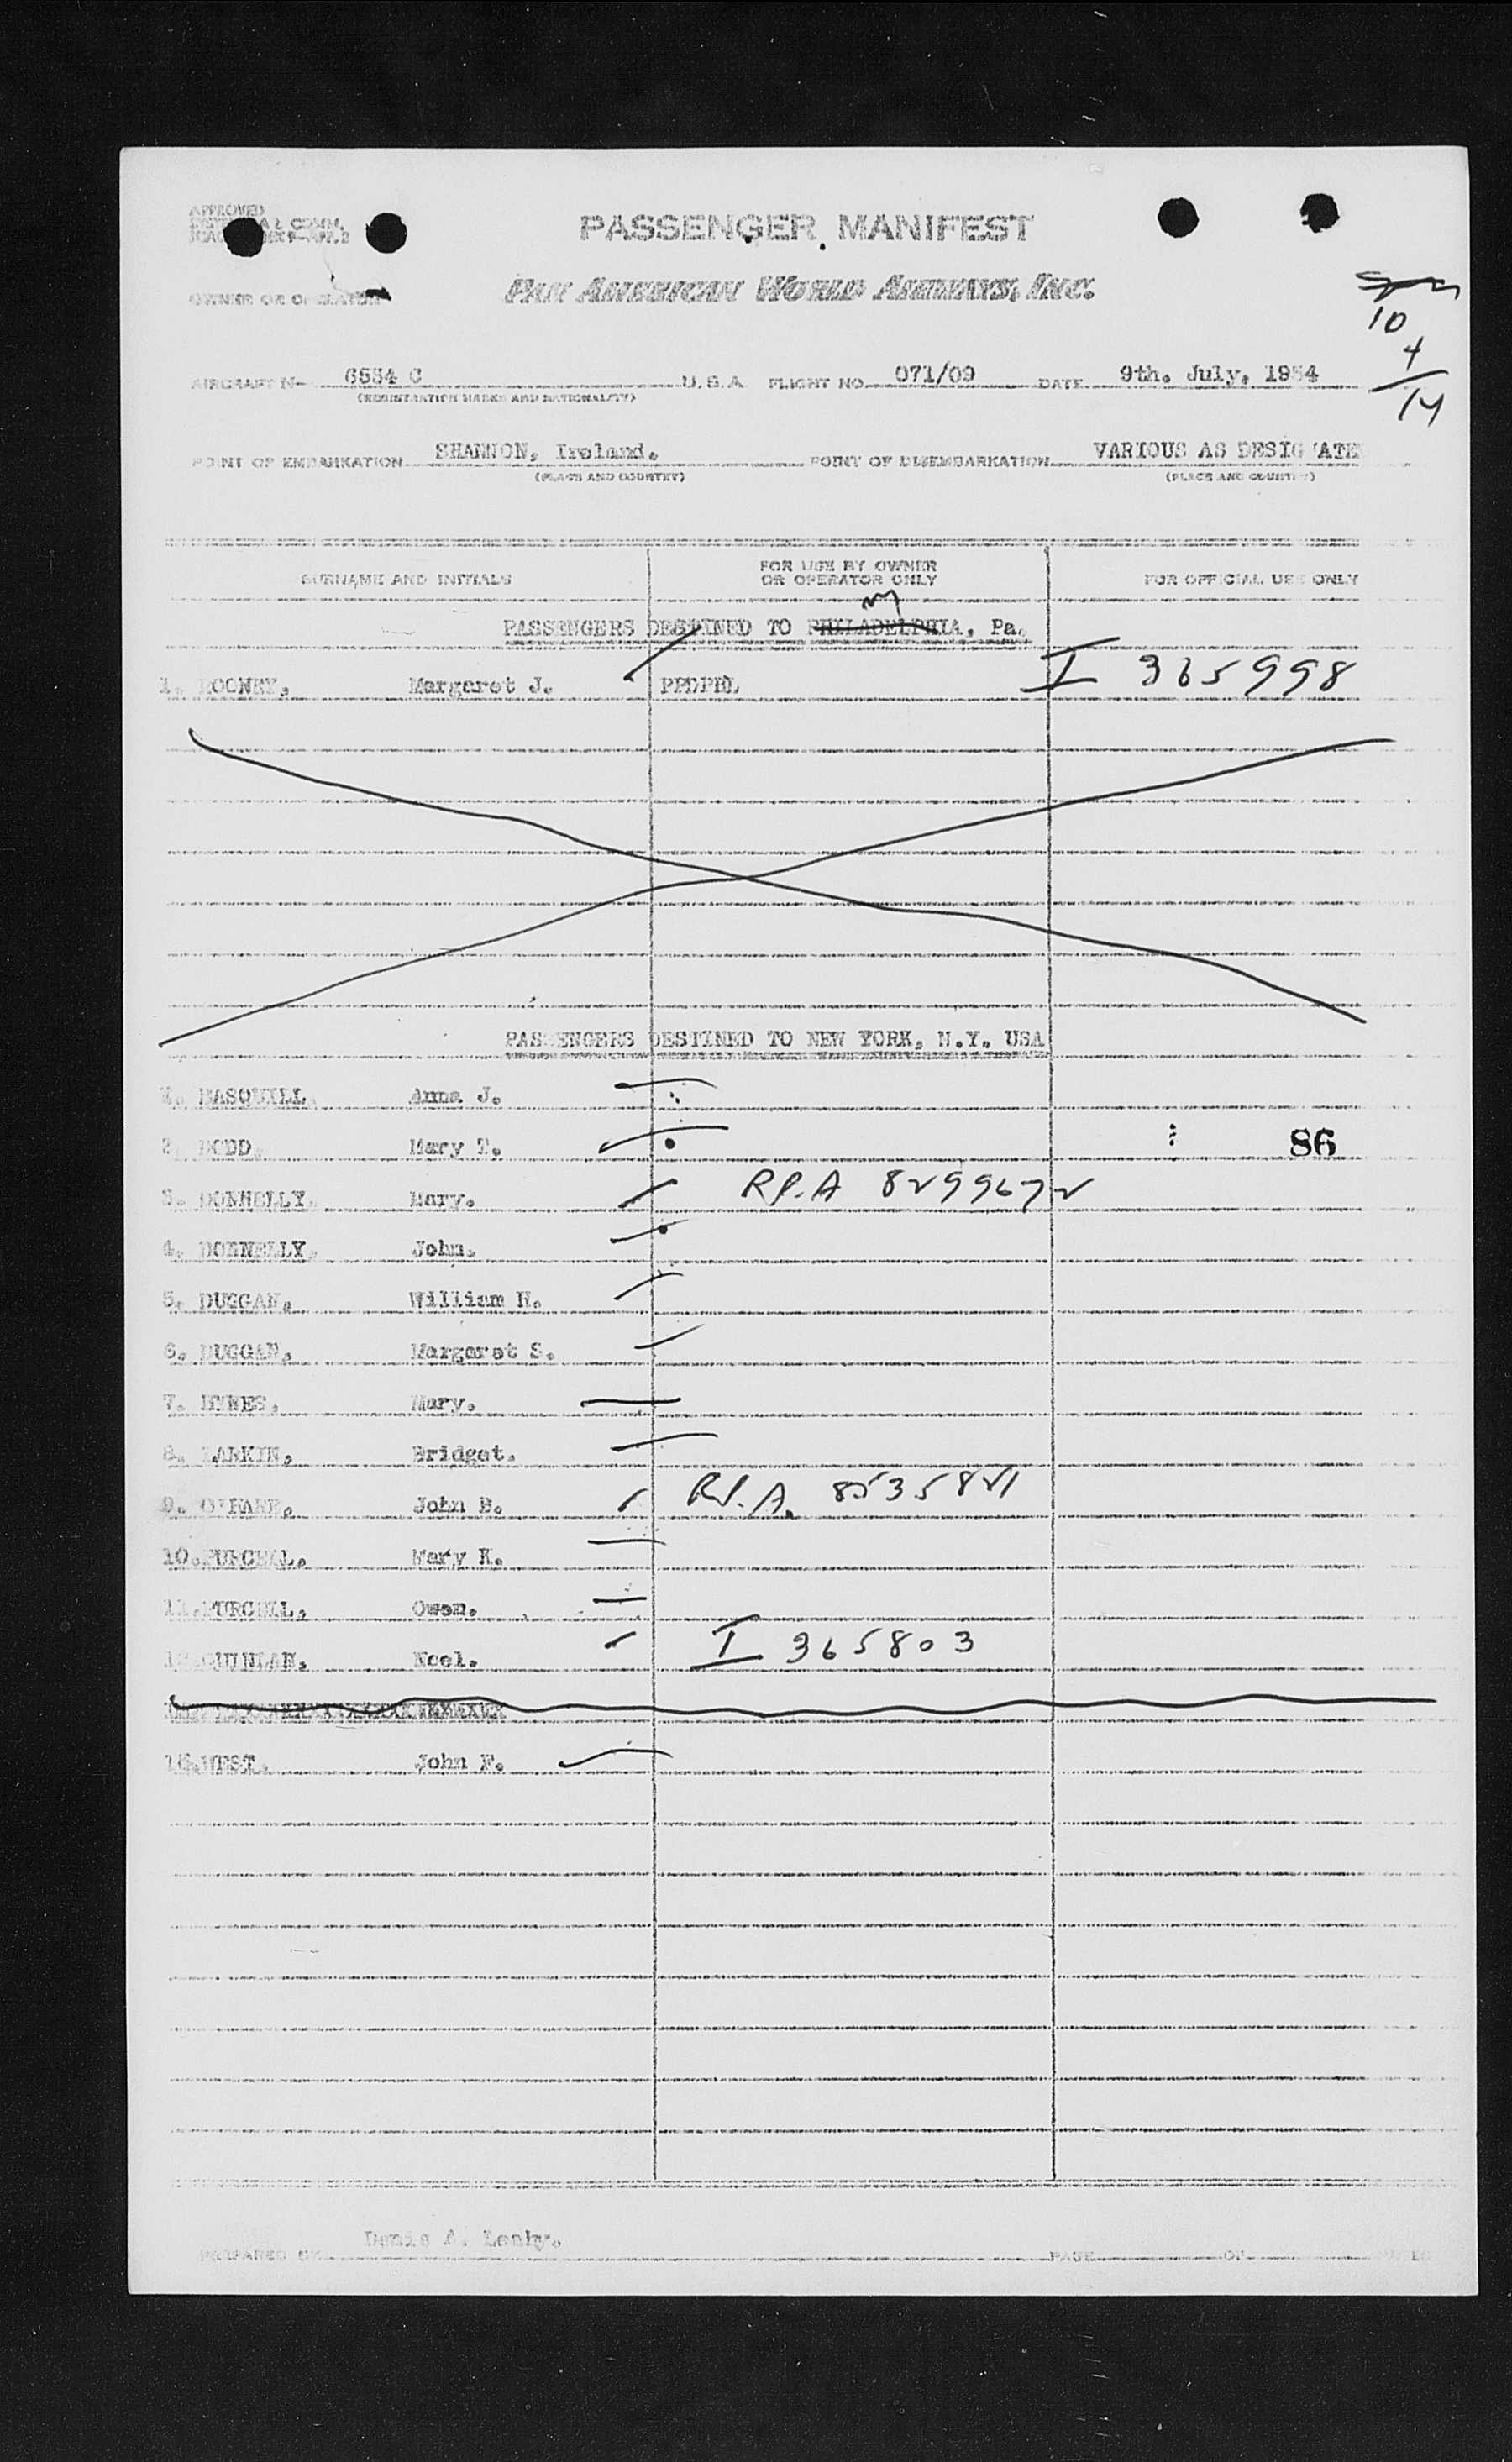 APPROVED
PASSENGER MANIFEST
OWNER OR OPERATOR PAN AMERICAN WORLD AIRWAYS, INC.
10
4
14
AIRCRAFT N- 6534 C U.S.A. FLIGHT NO. 071/09 DATE 9th. July, 1954
(REGISTRATION MARKS AND NATIONALITY)
POINT OF EMBARKATION SHANNON, Ireland. POINT OF DISEMBARKATION VARIOUS AS DESIG ATE
(PLACE AND COUNTRY) (PLACE AND COUNTRY)
SURNAME AND INITIALS FOR USE BY OWNER OR OPERATOR ONLY FOR OFFICIAL USE ONLY
PASSENGERS DESTINED TO PHILADELPHIA, Pa.
1. ROONEY, Margaret J. I 365998
PASSENGERS DESTINED TO NEW YORK, N.Y. USA
BASQUILL, Anna J.
2. DODD, Mary T. 86
3. DONNELLY, Mary. R.P.A 8299672
4. DONNELLY, John.
5. DUGGAN, William H.
6. DUGGAN, Margaret S.
7. HYNES, Mary.
8. LARKIN, Bridget.
9. John B. R.P.A. 8535821
10. PURCELL, Mary K.
11. PURCELL, Owen.
QUINLAN, Noel. I 365803
WEST, John F.
PREPARED BY Denis A. Leahy. PAGE OF